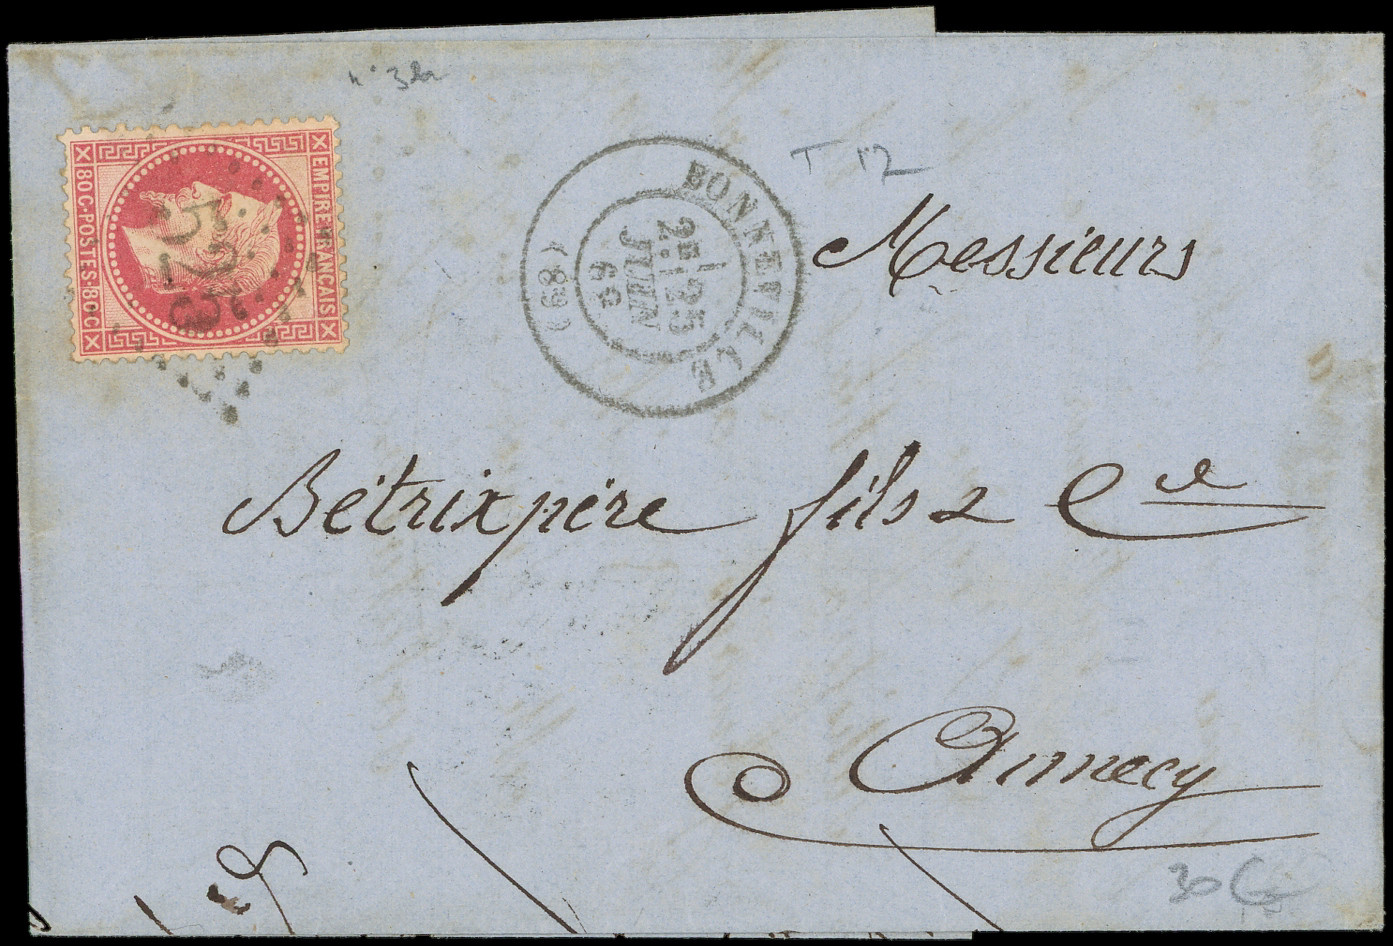 n° 32
EMPIRE FRANÇAIS
80 C · POSTES · 80 C
BONNEVILLE
2E 25
JUIN
69
(89)
T 17
Messieurs
Bétrix père fils & Cie
Annecy
30